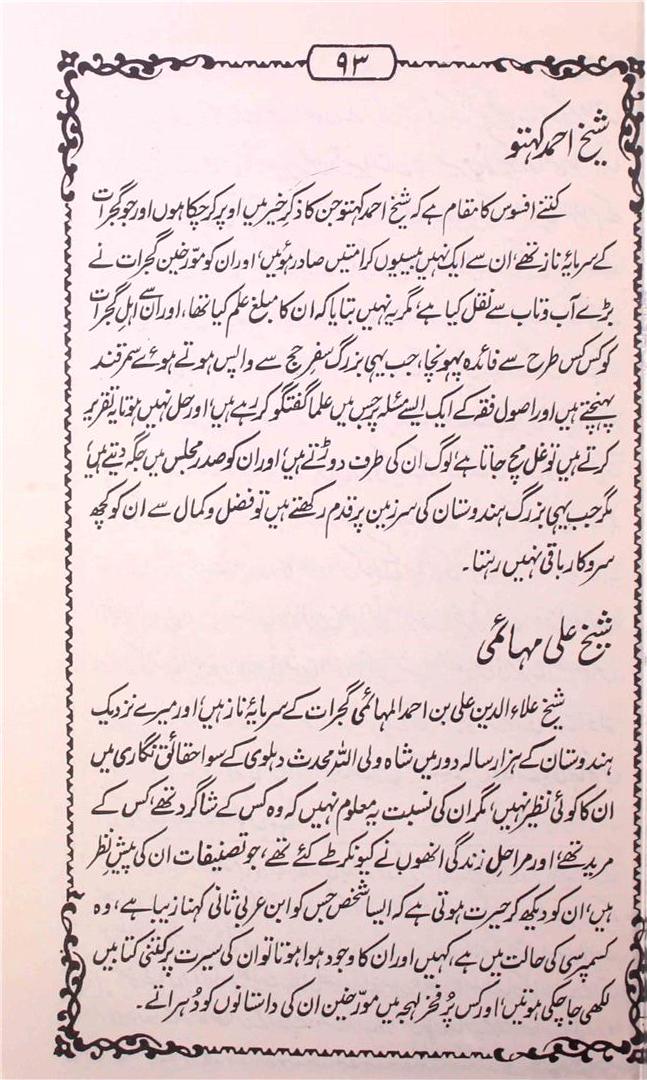 ۹۳
شیخ احمد کہتو
کتنے افسوس کا مقام ہے کہ شیخ احمد کہتو جن کا ذکرِ خیر میں اوپر کر چکا ہوں اور جو گجرات
کے سرمایۂ ناز تھے، ان سے ایک نہیں بیسیوں کرامتیں صادر ہوئیں، اور ان کو مؤرخین گجرات نے
بڑے آب و تاب سے نقل کیا ہے، مگر یہ نہیں بتایا کہ ان کا مبلغ علم کیا تھا، اور ان سے اہلِ گجرات
کو کس کس طرح سے فائدہ پہونچا، جب یہی بزرگ سفرِ حج سے واپس ہوتے ہوئے سمرقند
پہنچتے ہیں اور اصول فقہ کے ایک ایسے مسئلہ پر جس میں علما گفتگو کر رہے ہیں، اور حل نہیں ہوتا یہ تقریر
کرتے ہیں تو غل مچ جاتا ہے، لوگ ان کی طرف دوڑتے ہیں، اور ان کو صدر مجلس میں جگہ دیتے ہیں،
مگر جب یہی بزرگ ہندوستان کی سرزمین پر قدم رکھتے ہیں تو فضل و کمال سے ان کو کچھ
سروکار باقی نہیں رہتا۔
شیخ علی مہائمی
شیخ علاء الدین علی بن احمد المہائمی گجرات کے سرمایۂ ناز ہیں، اور میرے نزدیک
ہندوستان کے ہزار سالہ دور میں شاہ ولی اللہ محدث دہلوی کے سوا حقائق نگاری میں
ان کا کوئی نظیر نہیں، مگر ان کی نسبت یہ معلوم نہیں کہ وہ کس کے شاگرد تھے، کس کے
مرید تھے، اور مراحلِ زندگی انھوں نے کیونکر طے کئے تھے، جو تصنیفات ان کی پیشِ نظر
ہیں، ان کو دیکھ کر حیرت ہوتی ہے کہ ایسا شخص جس کو ابن عربی ثانی کہنا زیبا ہے، وہ
کسمپرسی کی حالت میں ہے، کہیں اور ان کا وجود ہوا ہوتا تو ان کی سیرت پر کتنی کتابیں
لکھی جا چکی ہوتیں، اور کس پُر فخر لہجہ میں مورخین ان کی داستانوں کو دُہراتے۔